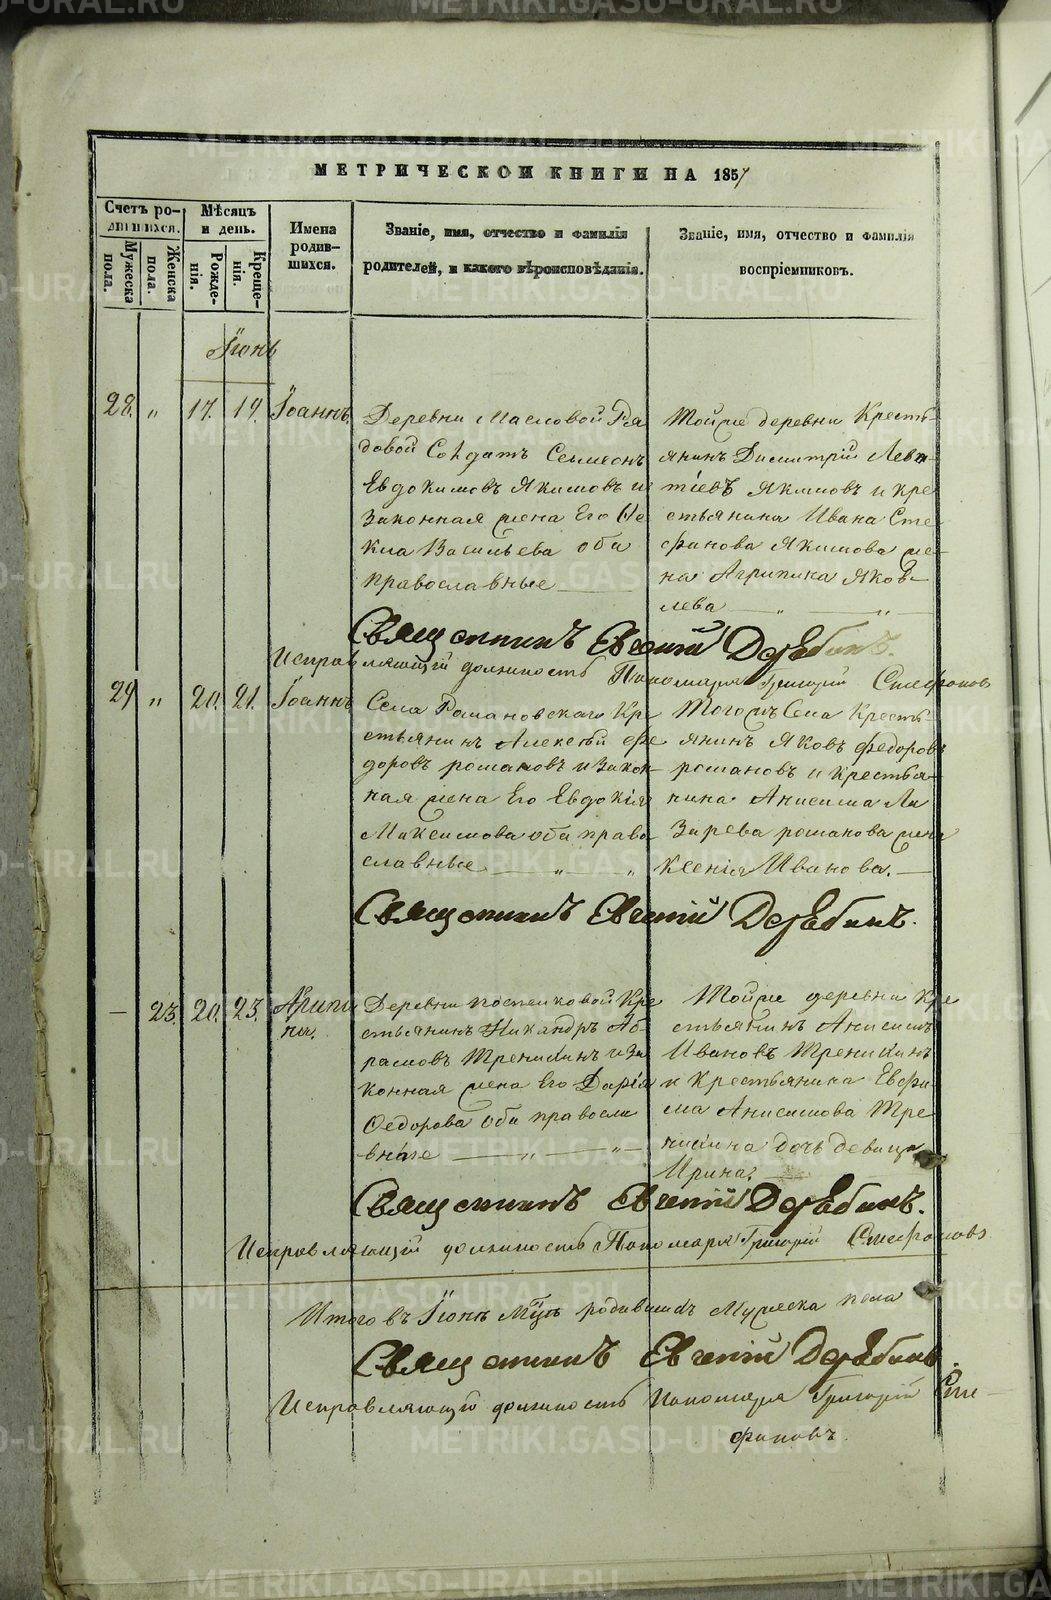 МЕТРИЧЕСКОЙ КНИГИ НА 1857
Счетъ ро-
дившихся.
Мужеска
пола.
Женска
пола.
Мѣсяцъ
и день.
Рожде-
нія.
Креще-
нія.
Имена
родив-
шихся.
Званіе, имя, отчество и фамилія
родителей, и какого вѣроисповѣданія.
Званіе, имя, отчество и фамилія
воспріемниковъ.
Іюнь
28. " 17. 19. Іоаннъ.
Деревни Масловой Ря
довой Солдатъ Семеонъ
Евдокимовъ Якимовъ и
Законная жена Его Ѳе
кла Васильева оба
православные
Тойже деревни Кресть-
янинъ Димитрій Леви
тіевъ Якимовъ и кре
стьянина Ивана Сте
фанова Якимова же-
на Агрипина Яков-
лева
Священникъ Евгеній Дерябинъ.
Исправляющій должность Пономаря Григорій Стефановъ
29 " 20. 21. Іоаннъ
Села Романовскаго Кре
стьянинъ Алексѣй Фе
доровъ романовъ и Закон-
ная жена Его Евдокія
Максимова оба право
славные
Тогожъ Села Кресть-
янинъ Яковъ Федоровъ
романовъ и Крестья-
нина Анисима Ла
Зарева романова жена
Ксенія Иванова.
Священникъ Евгеній Дерябинъ.
— 23. 20. 23. Агрипи
на.
Деревни Кре
стьянинъ Никандръ Аб-
рамовъ Тренихинъ и За
конная жена Его Дарія
Ѳедорова оба правосла
вные
Тойже деревни Кре
стьянинъ Анисимъ
Ивановъ Тренихинъ
и Крестьянина Евфи-
ма Анисимова Тре
нихина дочь девица
Ирина.
Священникъ Евгеній Дерябинъ.
Исправляющій должность Пономаря Григорій Стефановъ
Итого въ Іюнѣ Мцѣ родившихъ Мужеска пола
Священникъ Евгеній Дерябинъ.
Исправляющій должность Пономаря Григорій Сте-
фановъ.
METRIKI.GASO-URAL.RU